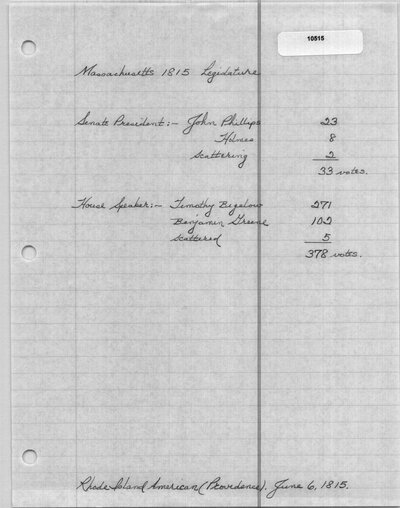 10515
Massachusetts 1815 Legislature
Senate President:- John Phillips 23
Holmes 8
Scattering 2
33 votes.
House Speaker:- Timothy Bigelow 271
Benjamin Greene 102
Scattered 5
378 votes.
Rhode Island American (Providence). June 6, 1815.